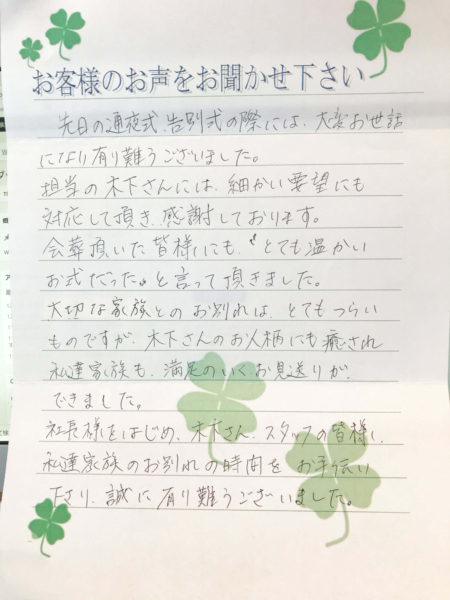 お客様のお声をお聞かせ下さい
先日の通夜式、告別式の際には、大変お世話
になり有り難うございました。
担当の木下さんには、細かい要望にも
対応して頂き、感謝しております。
会葬頂いた皆様にも、〝とても温かい
お式だった〟と言って頂きました。
大切な家族とのお別れは、とてもつらい
ものですが、木下さんのお人柄にも癒され
私達家族も、満足のいくお見送りが
できました。
社長様をはじめ、木下さん、スタッフの皆様に
私達家族のお別れの時間をお手伝い
下さり、誠に有り難うございました。